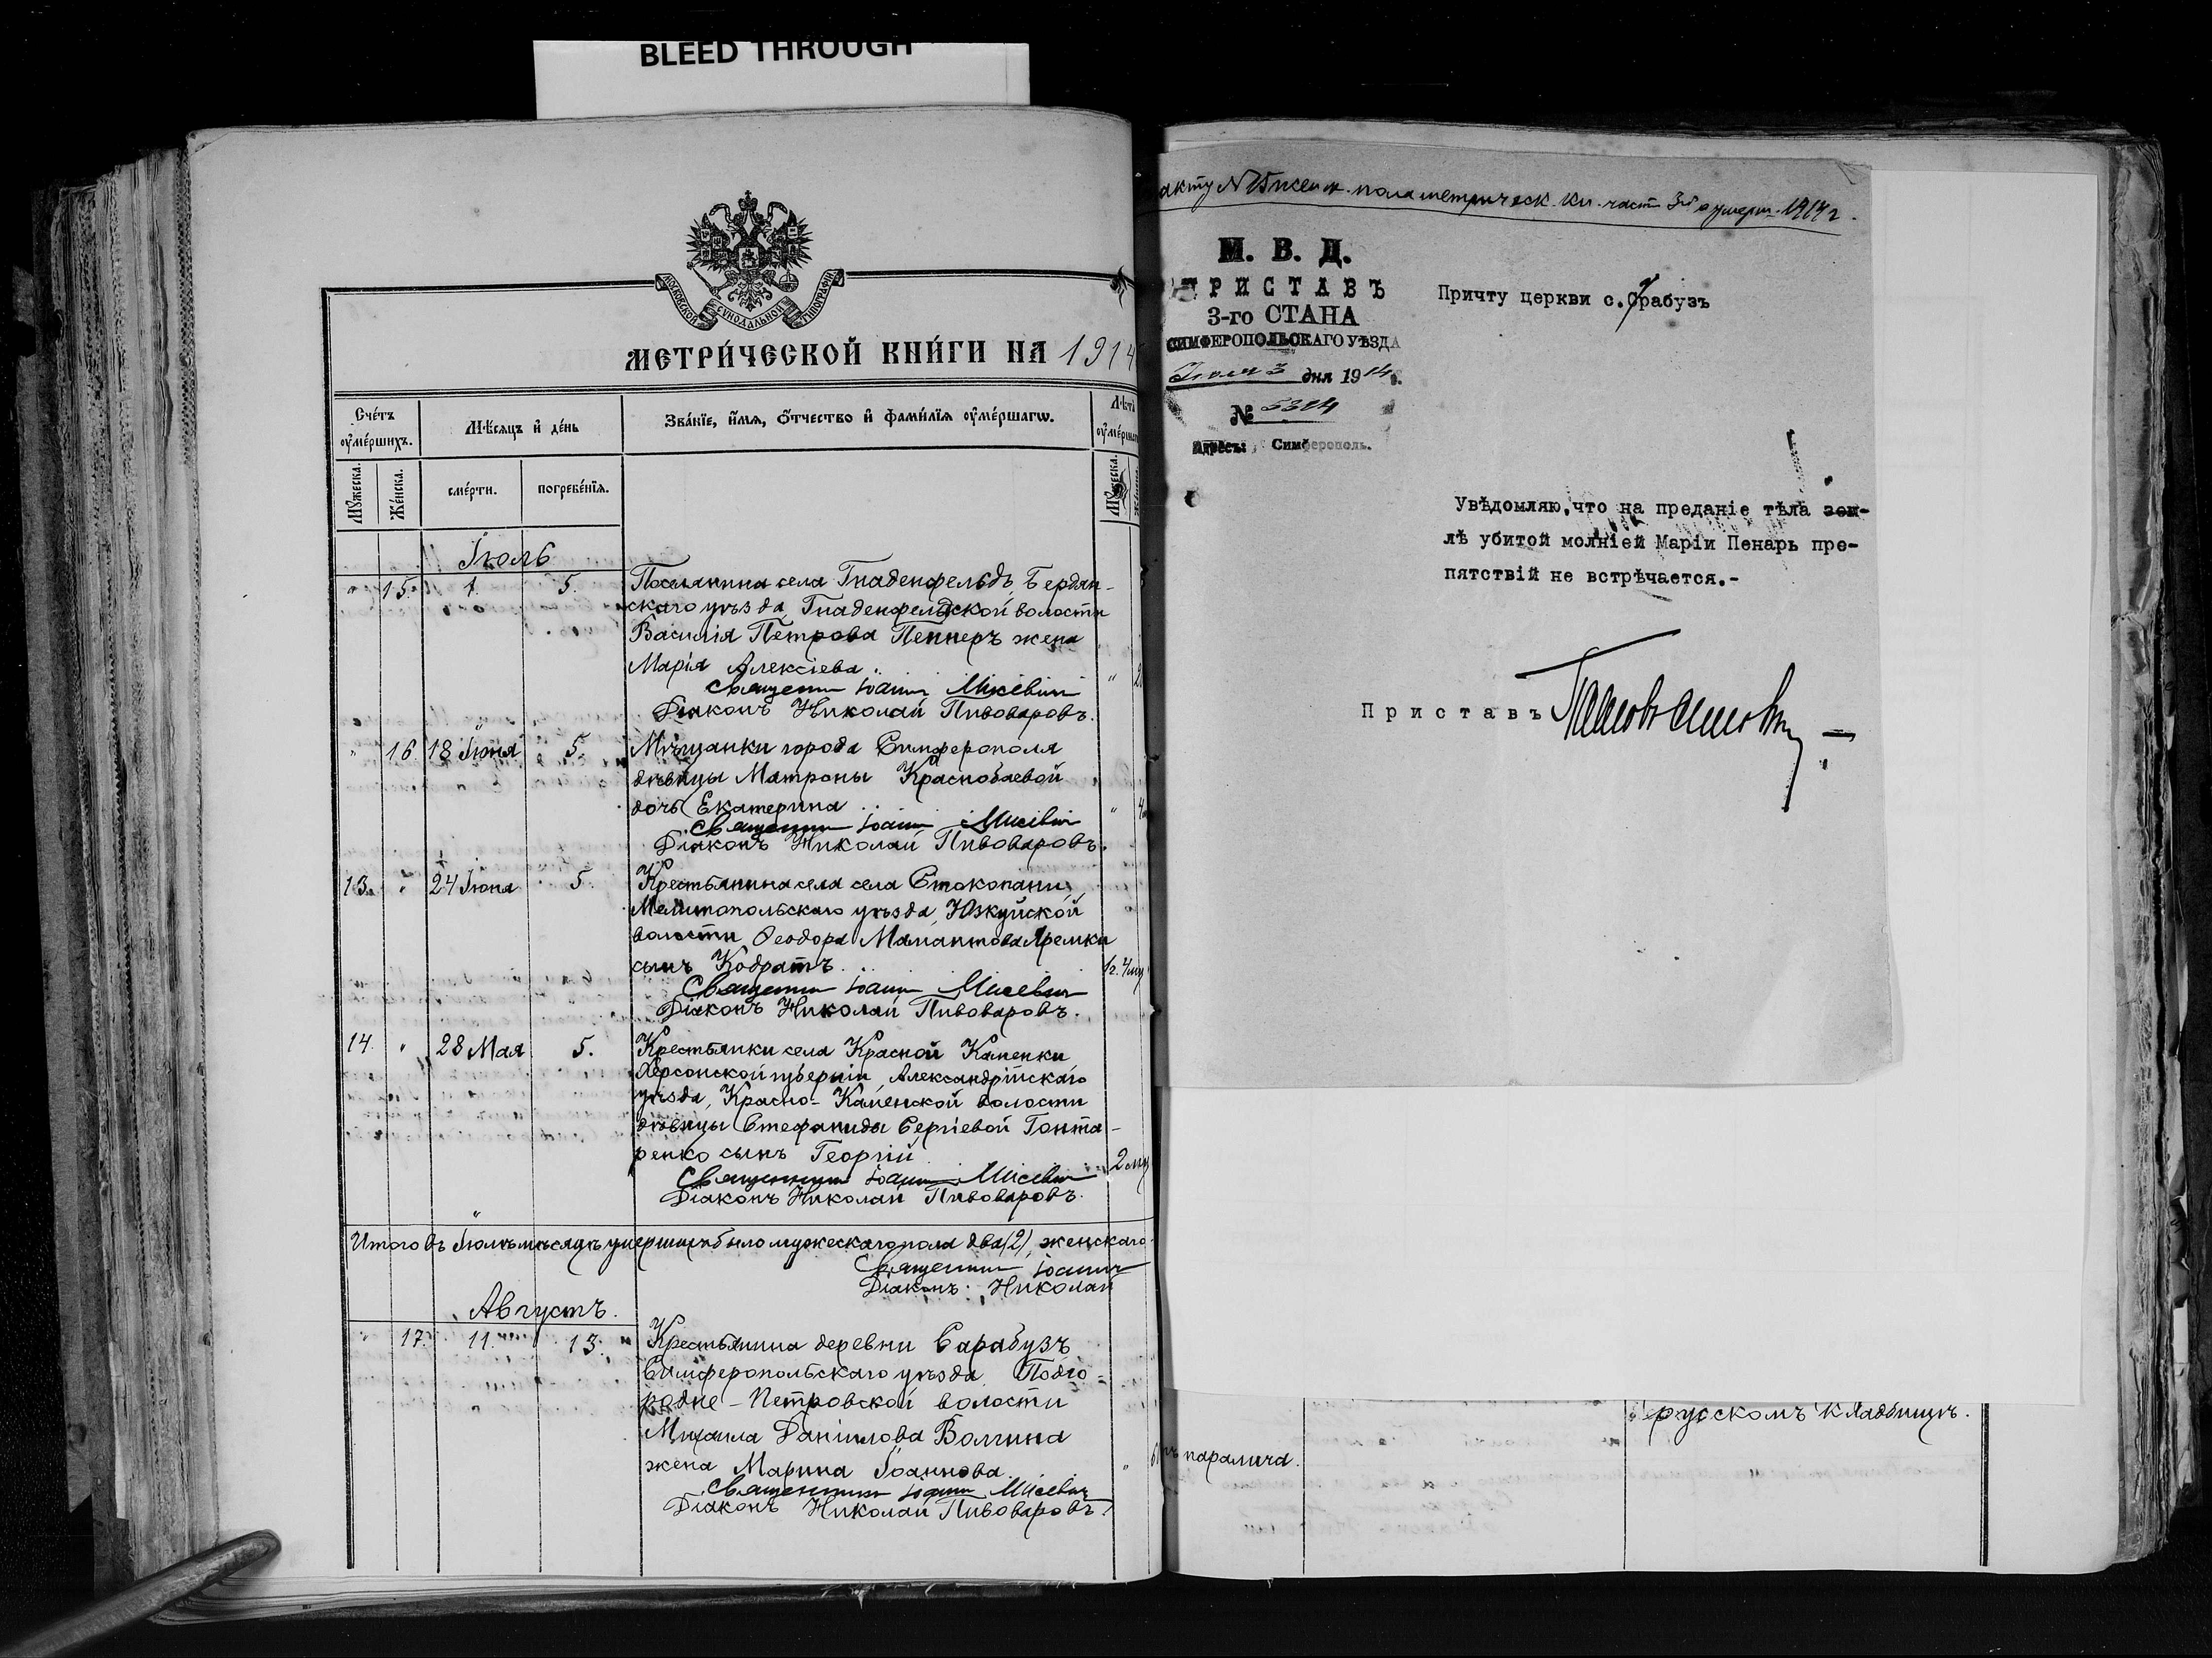 BLEED THROUGH
МОСКОВСКОЙ СУНОДАЛЬНОЙ ТИПОГРАФІИ
МЕТРИ́ЧЕСКОЙ КНИ́ГИ НА 1914
Сче́тъ ᲂу҆ме́ршихъ.
Мѣ́сяцъ и҆ де́нь
Зва́нїе, и҆́мя, ѻ҆́тчество и҆ фами́лїя ᲂу҆ме́ршагѡ.
Лѣта
ᲂу҆ме́ршагѡ
Мꙋ́жеска.
Же́нска.
сме́рти.
погребе́нїя.
Мꙋ́жеска.
Іюль
" 15. 1. 5. Поселянина села Гнаденфельдъ, Бердян-
скаго уѣзда, Гнаденфельдской волости
Василія Петрова Пеннеръ жена
Марія Алексіева.
Священникъ Іоаннъ Мисевичъ
Діаконъ Николай Пивоваровъ.
" 16 18 Іюня 5. Мѣщанки города Симферополя
дѣвицы Матроны Краснобаевой
дочь Екатерина
Священникъ Іоаннъ Мисевичъ
Діаконъ Николай Пивоваровъ.
13. " 24 Іюня 5. Крестьянина села села Стокопани,
Мелитопольскаго уѣзда, Юзкуйской
волости Ѳеодора Мамантова Яремки
сынъ Кодратъ. 1 г. 4 мц
Священникъ Іоаннъ Мисевичъ
Діаконъ Николай Пивоваровъ.
14. " 28 Мая 5. Крестьянки села Красной Каменки
Херсонской губерніи, Александрійскаго
уѣзда, Красно-Каменской волости
дѣвицы Стефаниды Сергіевой Гонта-
ренко сынъ Георгій 2 мц
Священникъ Іоаннъ Мисевичъ
Діаконъ Николай Пивоваровъ.
Итого въ Іюлѣ мѣсяцѣ умершихъ было мужескаго пола два (2), женскаго
Священникъ Іоаннъ
Діаконъ Николай
Августъ.
" 17. 11. 13. Крестьянина деревни Сарабузъ
Симферопольскаго уѣзда Подго-
родне-Петровской волости
Михаила Даніилова Волгина
жена Марина Іоаннова.
Священникъ Іоаннъ Мисевичъ
Діаконъ Николай Пивоваровъ.
акту № 15 женск. пола метрическ. кн. част 3й о умерш. 1914 г.
М. В. Д.
ПРИСТАВЪ
3-го СТАНА
СИМФЕРОПОЛЬСКАГО УѢЗДА
Іюля 3 дня 1914 г.
№ 5304
Адресъ: Симферополь.
Причту церкви с. Срабузъ
Увѣдомляю, что на преданіе тѣла зем-
лѣ убитой молніей Маріи Пенарь пре-
пятствій не встрѣчается.-
Приставъ
русскомъ кладбищѣ.
паралича.